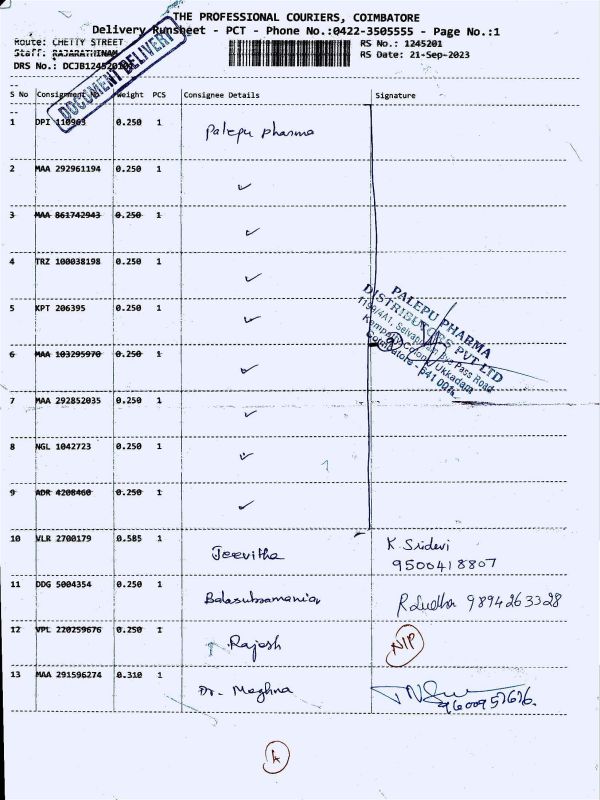 THE PROFESSIONAL COURIERS, COIMBATORE
Delivery Runsheet - PCT - Phone No.:0422-3505555 - Page No.:1
Route: CHETTY STREET RS No.: 1245201
Staff: RAJARATHINAM RS Date: 21-Sep-2023
DRS No.: DCJB1245201
DOCUMENT DELIVERY
S No Consignment No Weight PCS Consignee Details Signature
1 DPI 110963 0.250 1 Palepu pharma
2 MAA 292961194 0.250 1 ✓
3 MAA 861742943 0.250 1 ✓
4 TRZ 100038198 0.250 1 ✓
5 KPT 206395 0.250 1 ✓
6 MAA 103295970 0.250 1 ✓
7 MAA 292852035 0.250 1 ✓
8 NGL 1042723 0.250 1 ✓
9 ADR 4208460 0.250 1 ✓
PALEPU PHARMA
DISTRIBUTORS PVT LTD
1199/4A1, Bye Pass Road
Colony, Ukkadam
Coimbatore - 641 001.
10 VLR 2700179 0.585 1 Jeevitha K. Sridevi
9500418807
11 DDG 5004354 0.250 1 Balasubramania 9894263328
12 VPL 220259676 0.250 1 Rajesh NIP
13 MAA 291596274 0.310 1 Dr. Meghna
9600957676.
A